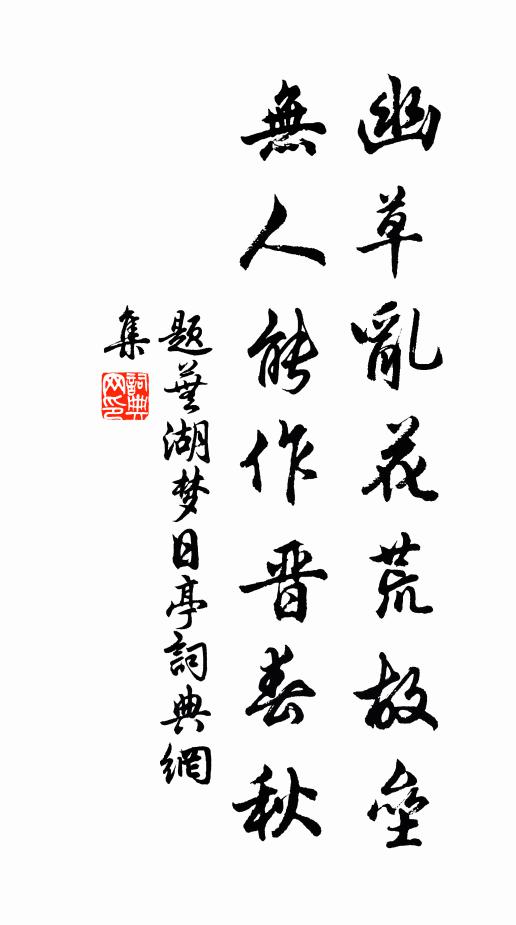 幽草亂花荒故壘
無人能作晋春秋
題蕪湖梦日亭詞典網
集
詞典
网印